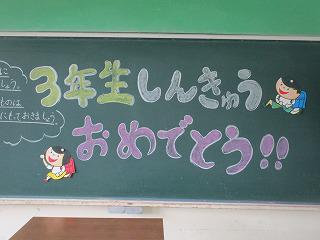 3年生しんきゅう
おめでとう!!
に
しょう。
ものは
にもっておきましょう。